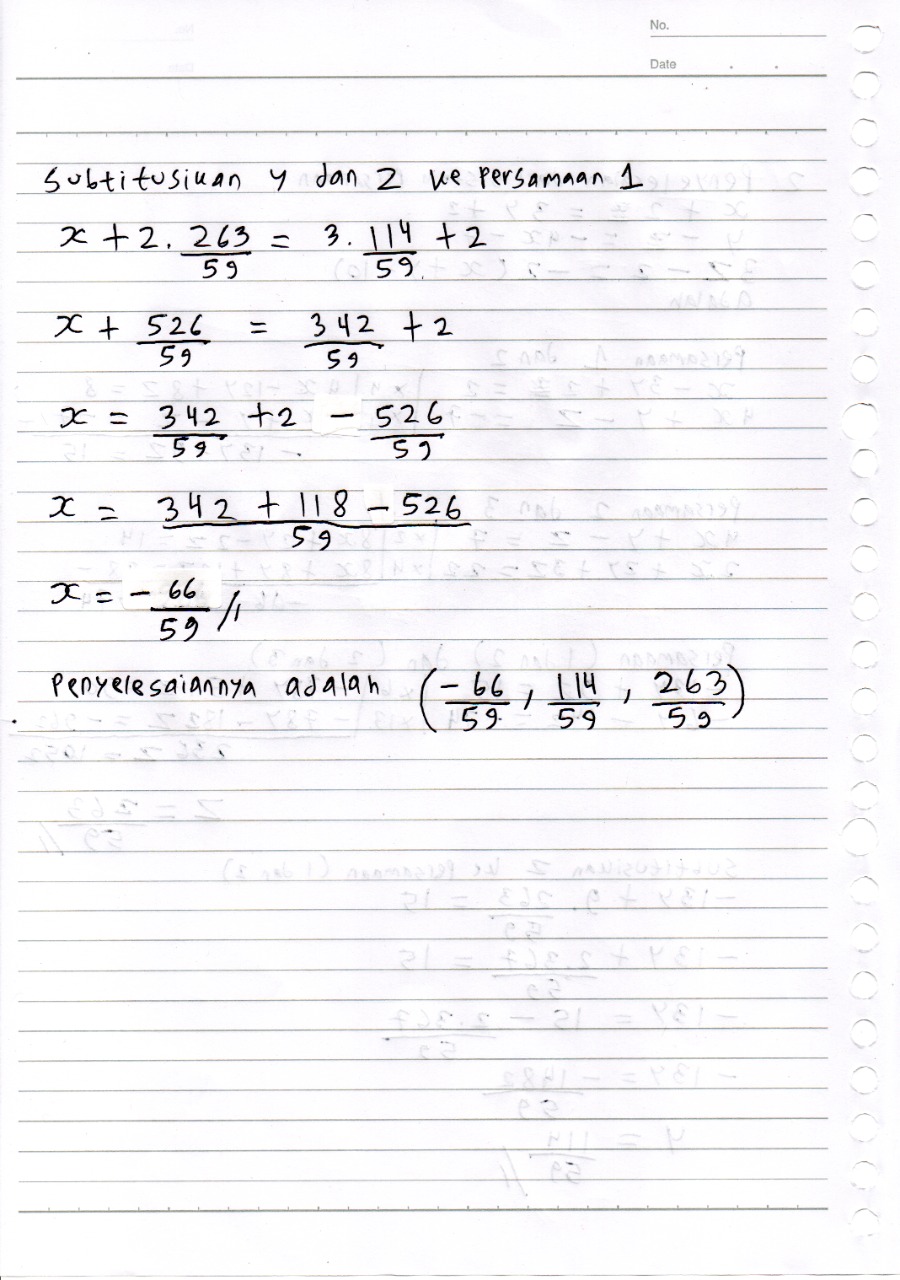 No.
Date
Subtitusikan y dan z ke persamaan 1
x + 2. 263/59 = 3. 114/59 + 2
x + 526/59 = 342/59 + 2
x = 342/59 + 2 - 526/59
x = 342 + 118 - 526/59
x = - 66/59 //
Penyelesaiannya adalah (-66/59, 114/59, 263/59)